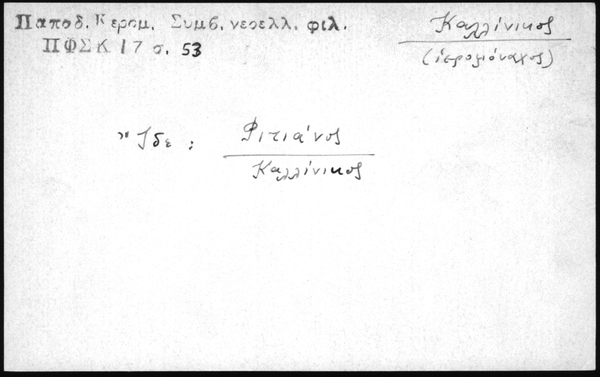 Παπαδ. Κεραμ. Συμβ. νεοελλ. φιλ.
ΠΦΣΚ 17 σ. 53
Καλλίνικος
(ἱερομόναχος)
Ἴδε :
Φιτιάνος
Καλλίνικος